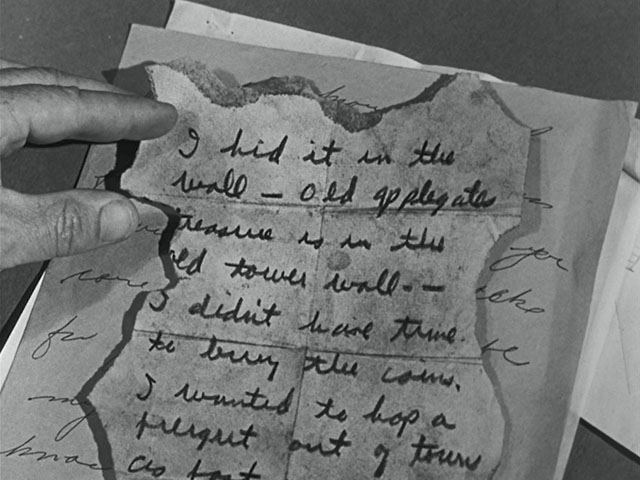 I hid it in the
wall — Old applegates
treasure is in the
old tower wall--
I didn't have time
to bury the coins.
I wanted to hop a
freight out of town
as fast